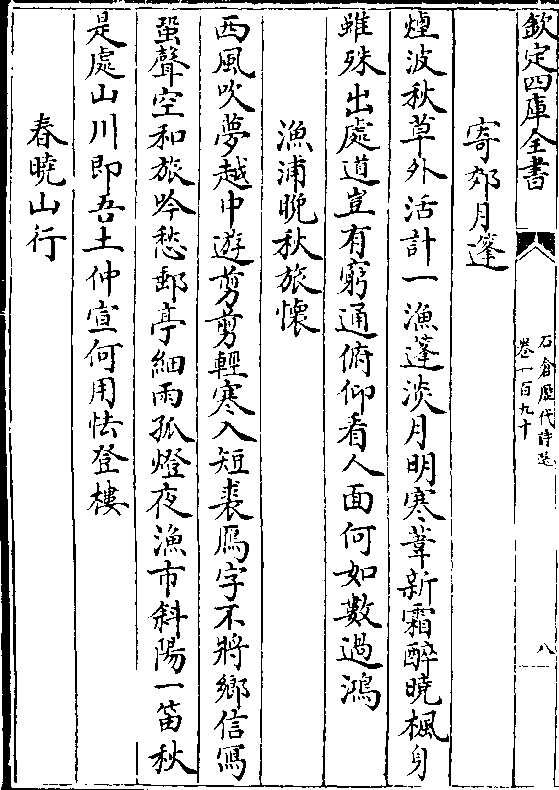 欽定四庫全書
石倉歷代詩選
卷一百九十
八
寄郊月蓬
煙波秋草外活計一漁蓬淡月明寒葦新霜醉曉楓身
雖殊出處道豈有窮通俯仰看人面何如數過鴻
漁浦晚秋旅懷
西風吹夢越中遊剪剪輕寒入短裘鴈字不將鄉信寫
蛩聲空和旅吟愁郵亭細雨孤燈夜漁市斜陽一笛秋
是處山川即吾土仲宣何用怯登樓
春曉山行